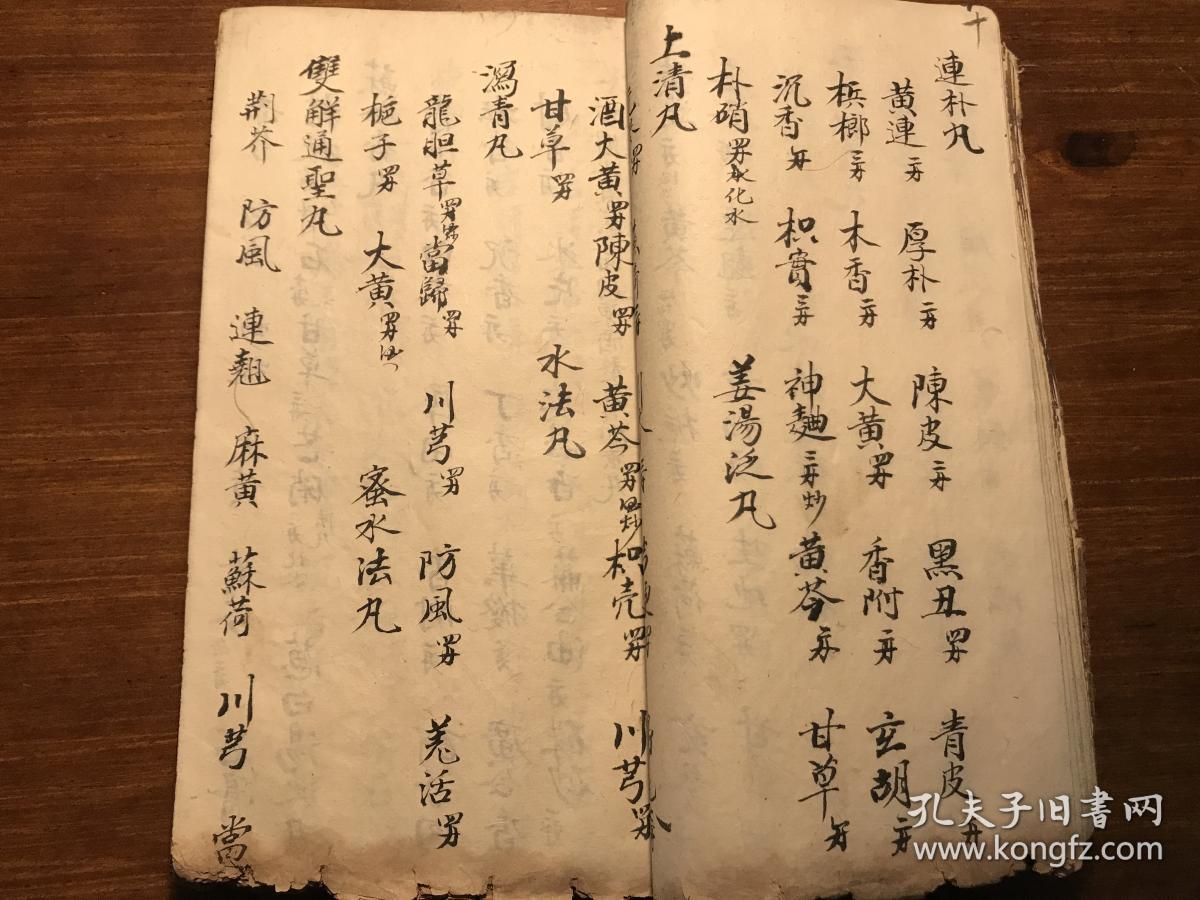 十
連朴丸
黄連二两 厚朴二两 陳皮二两 黑丑四两 青皮二两
槟榔三两 木香二两 大黄四两 香附二两 玄胡二两
沉香一两 枳實三两 神麯三两炒 黄芩二两 甘草一两
朴硝四两水化水 姜湯泛丸
上清丸
酒大黄四两 陳皮四两 黄芩四两炒 枳壳四两 川芎四两
甘草四两 水法丸
瀉青丸
龍胆草四两炒 當歸四两 川芎四两 防風四两 羌活四两
梔子四两 大黄四两 蜜水法丸
雙解通聖丸
荆芥 防風 連翹 麻黄 蘇荷 川芎 當
孔夫子旧书网
www.kongfz.com